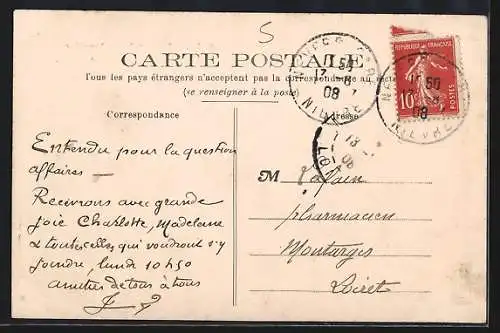 5
CARTE POSTALE
Tous les pays étrangers n'acceptent pas la correspondance au recto
(se renseigner à la poste)
Correspondance
Adresse
RÉPUBLIQUE FRANÇAISE
10
POSTES
NEVERS GARE
50
17
08
NIÈVRE
50
08
NIÈVRE
13
08
Entendu pour la question
affaires —
Recevrons avec grande
joie Charlotte, Madeleine
& toutes celles qui voudront s'y
joindre, lundi 10h50
amitiés de tous à tous
M
pharmacien
Montargis
Loiret